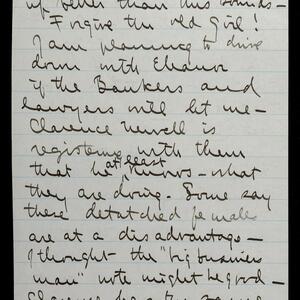 up better than this sounds –
Forgive the old girl!
I am planning to drive
down with Eleanor
if the Bankers and
lawyers will let me –
Clarence Newell is
registering with them
that he at least knows – what
they are doing. Some say
these detatched females
are at a disadvantage –
I thought the "big business
man" note might be good –